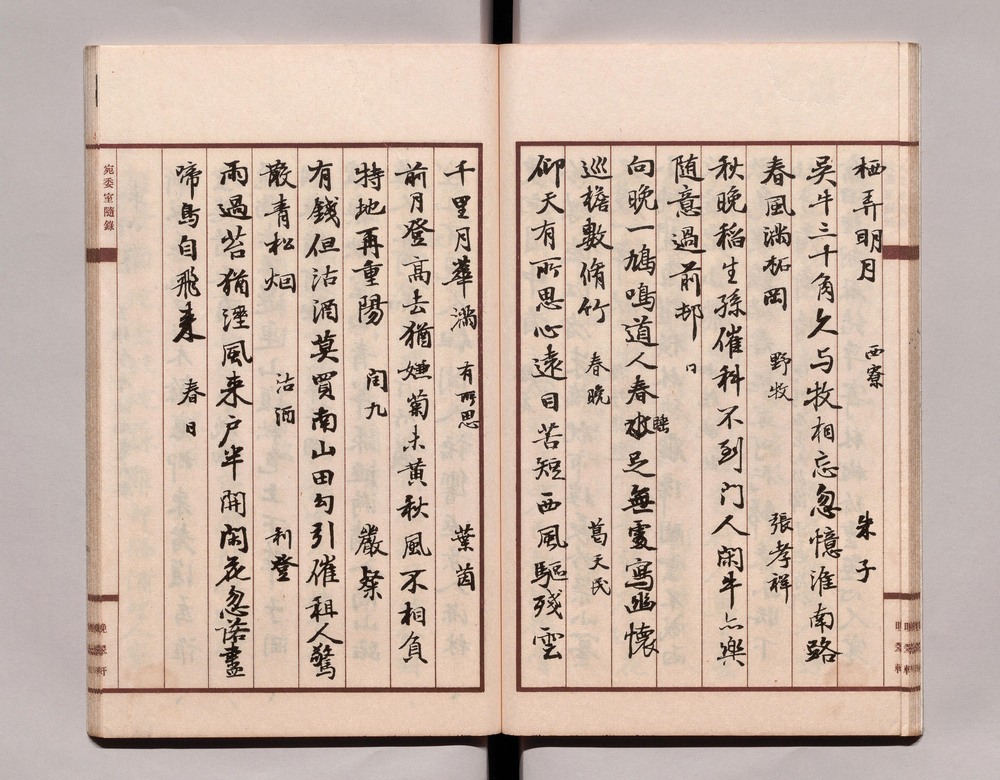 栖弄明月　西寮　朱子
吴牛三十角久与牧相忘忽憶淮南路
春風满柘岡　野牧　張孝祥
秋晚稻生孫催科不到门人闲牛亦樂
随意過前邨
向晚一鳩鳴道人春睡足無處寫幽懷
巡檐數脩竹　春晚　葛天民
仰天有所思心遠日苦短西風驅殘雲
千里月華满　有所思　葉茵
前月登高去猶嫌菊未黄秋風不相負
特地再重陽　闰九　嚴粲
有錢但沽酒莫買南山田勾引催租人驚
散青松烟　沽酒　利登
雨過苔猶溼風来户半開閑花忽落盡
啼鳥自飛来　春日
宛委室隨錄
晚翠軒